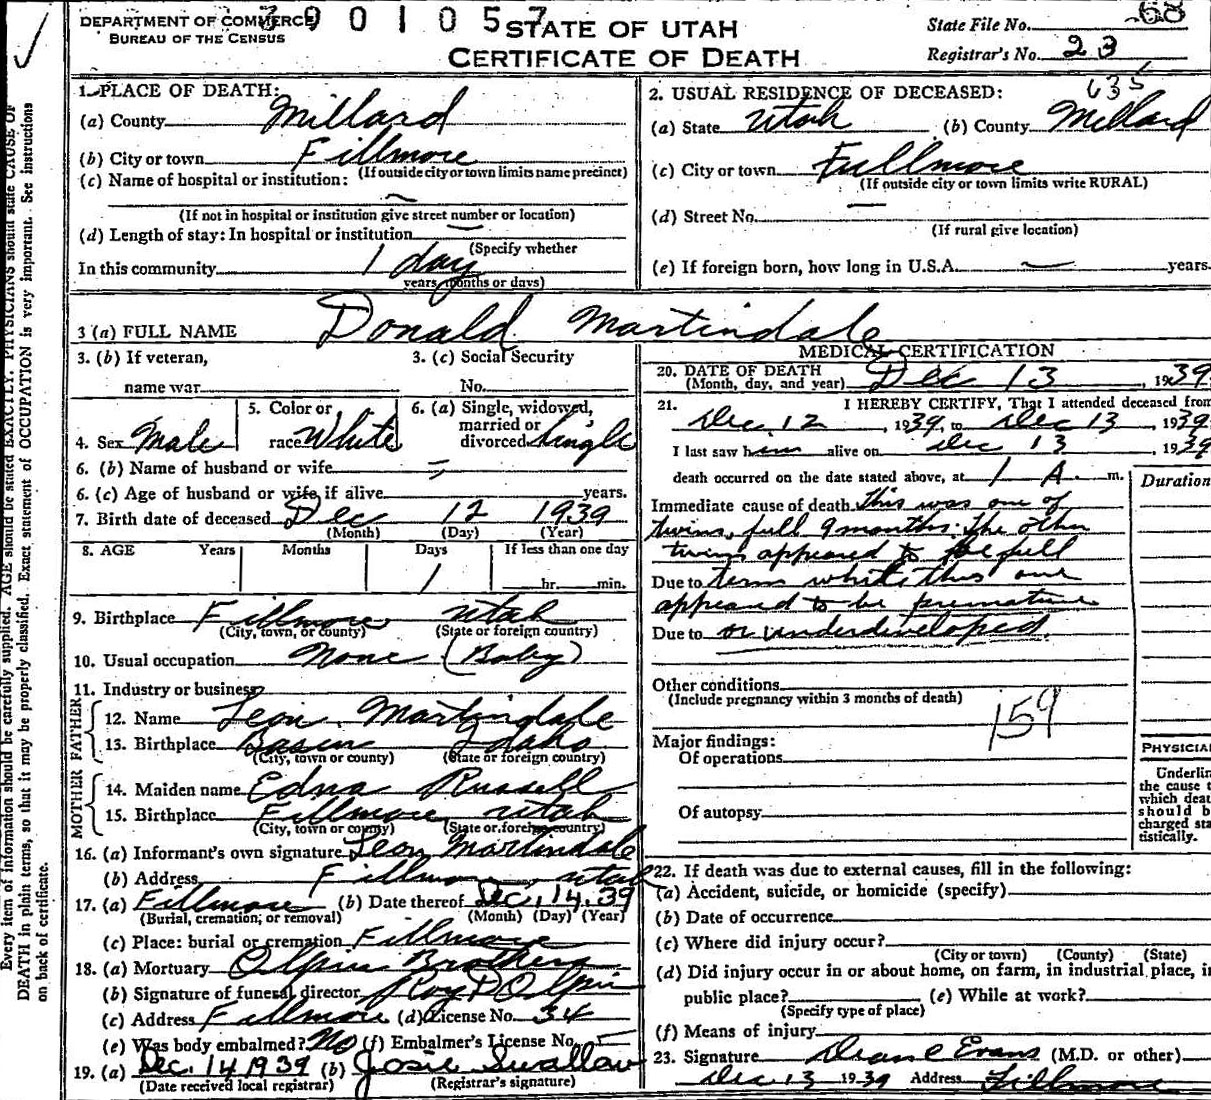 DEPARTMENT OF COMMERCE
BUREAU OF THE CENSUS
3901057
STATE OF UTAH
CERTIFICATE OF DEATH
State File No. 68
Registrar's No. 23
Every item of information should be carefully supplied. AGE should be stated EXACTLY. PHYSICIANS should state CAUSE OF
DEATH in plain terms, so that it may be properly classified. Exact statement of OCCUPATION is very important. See instructions
on back of certificate.
1. PLACE OF DEATH:
(a) County Millard
(b) City or town Fillmore
(If outside city or town limits name precinct)
(c) Name of hospital or institution:
(If not in hospital or institution give street number or location)
(d) Length of stay: In hospital or institution
(Specify whether
In this community 1 day
years, months or days)
2. USUAL RESIDENCE OF DECEASED: 635
(a) State Utah (b) County Millard
(c) City or town Fillmore
(If outside city or town limits write RURAL)
(d) Street No.
(If rural give location)
(e) If foreign born, how long in U.S.A. years.
3 (a) FULL NAME Donald Martindale
3. (b) If veteran,
name war
3. (c) Social Security
No.
4. Sex Male
5. Color or
race White
6. (a) Single, widowed,
married or
divorced Single
6. (b) Name of husband or wife
6. (c) Age of husband or wife, if alive years.
7. Birth date of deceased Dec 12 1939
(Month) (Day) (Year)
8. AGE Years Months Days If less than one day
1 hr. min.
9. Birthplace Fillmore Utah
(City, town, or county) (State or foreign country)
10. Usual occupation None (Baby)
11. Industry or business
FATHER
12. Name Leon Martindale
13. Birthplace Basin Idaho
(City, town or county) (State or foreign country)
MOTHER
14. Maiden name Edna Russell
15. Birthplace Fillmore Utah
(City, town or county) (State or foreign country)
16. (a) Informant's own signature Leon Martindale
(b) Address Fillmore, Utah
17. (a) Fillmore (b) Date thereof Dec. 14. 39
(Burial, cremation, or removal) (Month) (Day) (Year)
(c) Place: burial or cremation Fillmore
18. (a) Mortuary Olpin Brothers
(b) Signature of funeral director Roy P Olpin
(c) Address Fillmore (d) License No. 34
(e) Was body embalmed? No (f) Embalmer's License No.
19. (a) Dec. 14 1939 (b) Josie Swallow
(Date received local registrar) (Registrar's signature)
MEDICAL CERTIFICATION
20. DATE OF DEATH
(Month, day, and year) Dec 13, 1939
21. I HEREBY CERTIFY, That I attended deceased from
Dec. 12, 1939, to Dec 13, 1939
I last saw him alive on Dec 13, 1939
death occurred on the date stated above, at 1 A. m.
Duration
Immediate cause of death This was one of
twins, full 9 months. The other
twins appeared to be full
Due to term while this one
appeared to be premature
Due to or underdeveloped.
Other conditions
(Include pregnancy within 3 months of death)
159
Major findings:
Of operations
Of autopsy
PHYSICIA
Underlin
the cause t
which deat
should b
charged sta
tistically.
22. If death was due to external causes, fill in the following:
(a) Accident, suicide, or homicide (specify)
(b) Date of occurrence
(c) Where did injury occur?
(City or town) (County) (State)
(d) Did injury occur in or about home, on farm, in industrial place, in
public place? (e) While at work?
(Specify type of place)
(f) Means of injury
23. Signature Deane Evans (M.D. or other)
Dec 13 1939 Address Fillmore